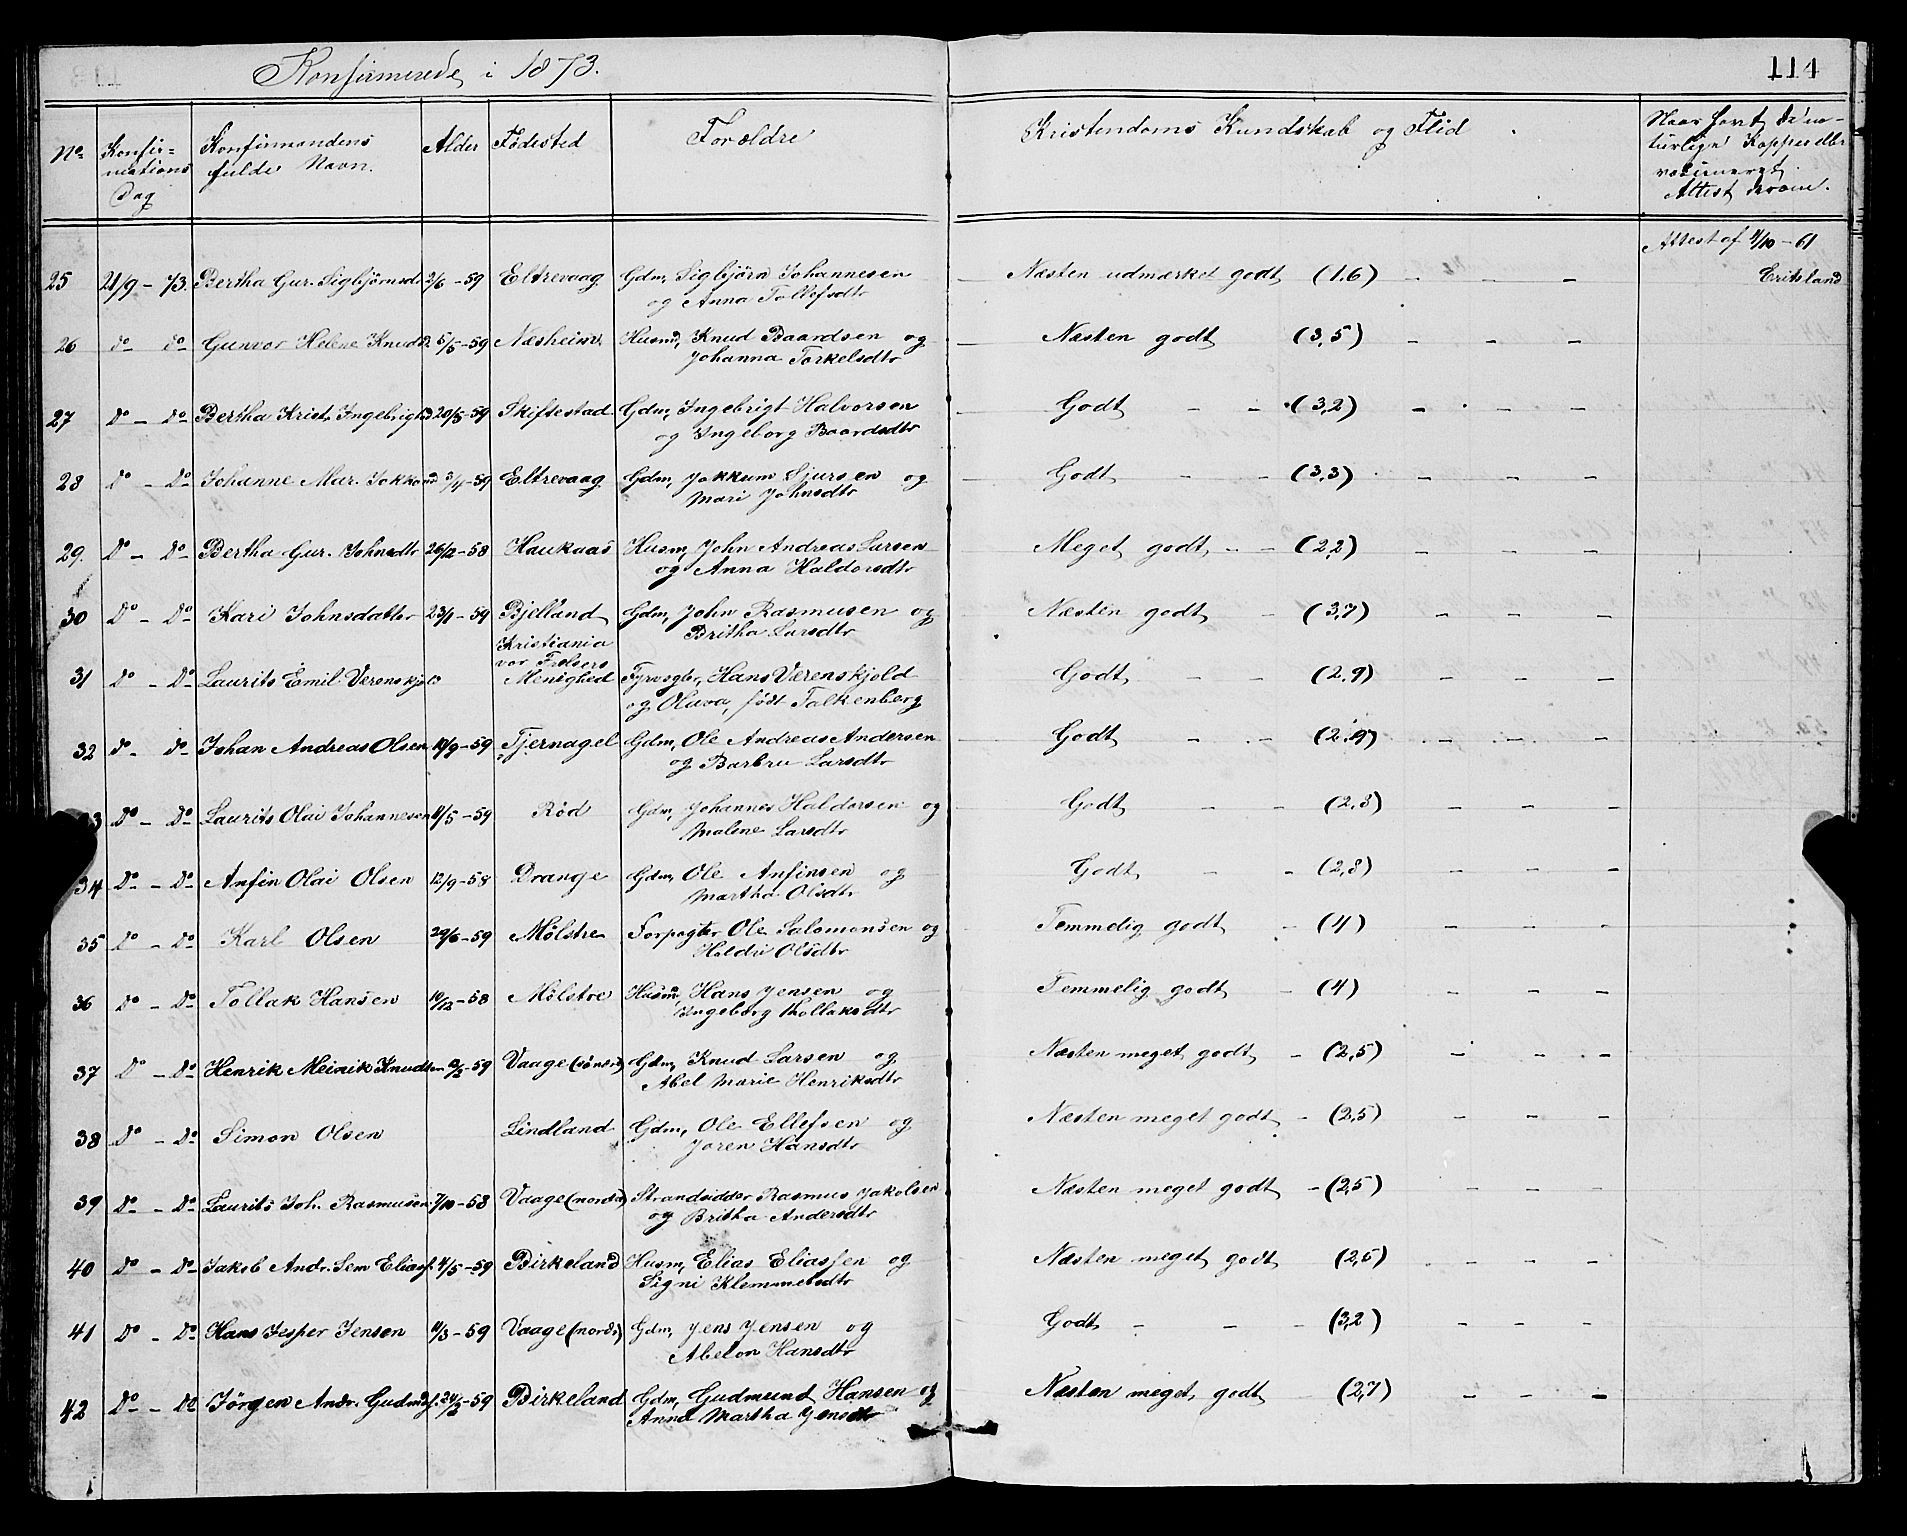 Konfirmerede i 1873.
114
No. Konfir= mations Dag Konfirmandens fulde Navn. Alder Fødested Forældre Kristendoms Kundskab og Flid Naar havt de na- turlige Kopper eller vaccineret. Attest derom.
Attest af 4/10 - 61
25 21/9 - 73. Bertha Gur. Sigbjørnsd. 2/6 - 59 Eltrevaag Gdm, Sigbjørn Johannesen Næsten udmærket godt (1,6) - - - -
og Anna Tollefsdtr
26 do do Gunvor Helene Knudsd. 5/5 - 59 Næsheim Husmd, Knud Baardsen og Næsten godt (3,5) - - -
Johanna Torkelsdtr
27 Do - Do Bertha Krist. Ingebrigtsd 20/5 - 59 Skiftestad Gdm, Ingebrigt Halvorsen Godt - - (3,2) - - -
og Ingeborg Baardsdtr
28 Do - Do Johanne Mar. Jokkumsd 3/4 - 59 Eltrevaag Gdm, Jokkum Sjursen og Godt - - (3,3) - - -
Mari Johnsdtr
29. Do - Do Bertha Gur. Johnsdtr 26/12 - 58 Haukaas Husm, John Andreas Larsen Meget godt - - (2,2) - - -
og Anna Haldorsdtr
30 Do - Do Kari Johnsdatter 23/1 - 59 Bjelland Gdm, John Rasmusen og Næsten godt - (3,7) - - -
Britha Larsdtr
Kristiania
vor Frelsers
31 Do - Do Laurits Emil Verenskjold Menighed Fyrvogter, Hans Verenskjold Godt - - (2,9) - - -
og Oluva, født Falkenberg
32 do - do Johan Andreas Olsen 19/9 - 59 Tjernagel Gdm, Ole Andreas Andersen Godt - - (2,9) - - -
og Barbru Larsdtr
33 Do - Do Laurits Olai Johannesen 4/5 - 59 Rød Gdm, Johannes Haldorsen og Godt - - (2,8) - - -
Malene Larsdtr
34 Do - Do Anfin Olai Olsen 12/9 - 58 Drange Gdm, Ole Anfinsen og Godt - - (2,8) - - -
Martha Olsdtr
35 Do - Do Karl Olsen 29/6 - 59 Mølstre Forpagter Ole Salomonsen og Temmelig godt - (4) - - -
Holdri Olsdtr
36 Do - Do Tollak Hansen 10/12 - 58 Mølstre Husm, Hans Jensen og Temmelig godt - (4) - - -
Ingeborg Thollaksdtr
37 Do - Do Henrik Meinik Knudsen - 59 Vaage (søndr) Gdm, Knud Larsen og Næsten meget godt - (2,5) - - -
Abel Marie Henriksdtr
38 Do - Do Simon Olsen Lindland Gdm, Ole Ellefsen og Næsten meget godt - (2,5) - - -
Joren Hansdtr
39 Do - Do Laurits Joh. Rasmusen 7/10 - 58 Vaage (nordr) Strandsidder Rasmus Jakobsen Næsten meget godt - (2,5) - - -
og Britha Andersdtr
40 Do - Do Jakob Andr. Sem Eliass. 4/5 - 59 Birkeland Husm, Elias Eliassen og Næsten meget godt (2,5) - - -
Signi Klemmetsdtr
41 Do - Do Hans Jesper Jensen 4/3 - 59 Vaage (nordr) Gdm, Jens Jensen og Godt - - - (3,2) - - -
Abelon Hansdtr
42 Do - Do Jörgen Andr. Gudmds. 24/2 - 59 Birkeland Gdm, Gudmund Hansen og Næsten meget godt - (2,7) - - -
Anna Martha Jensdtr